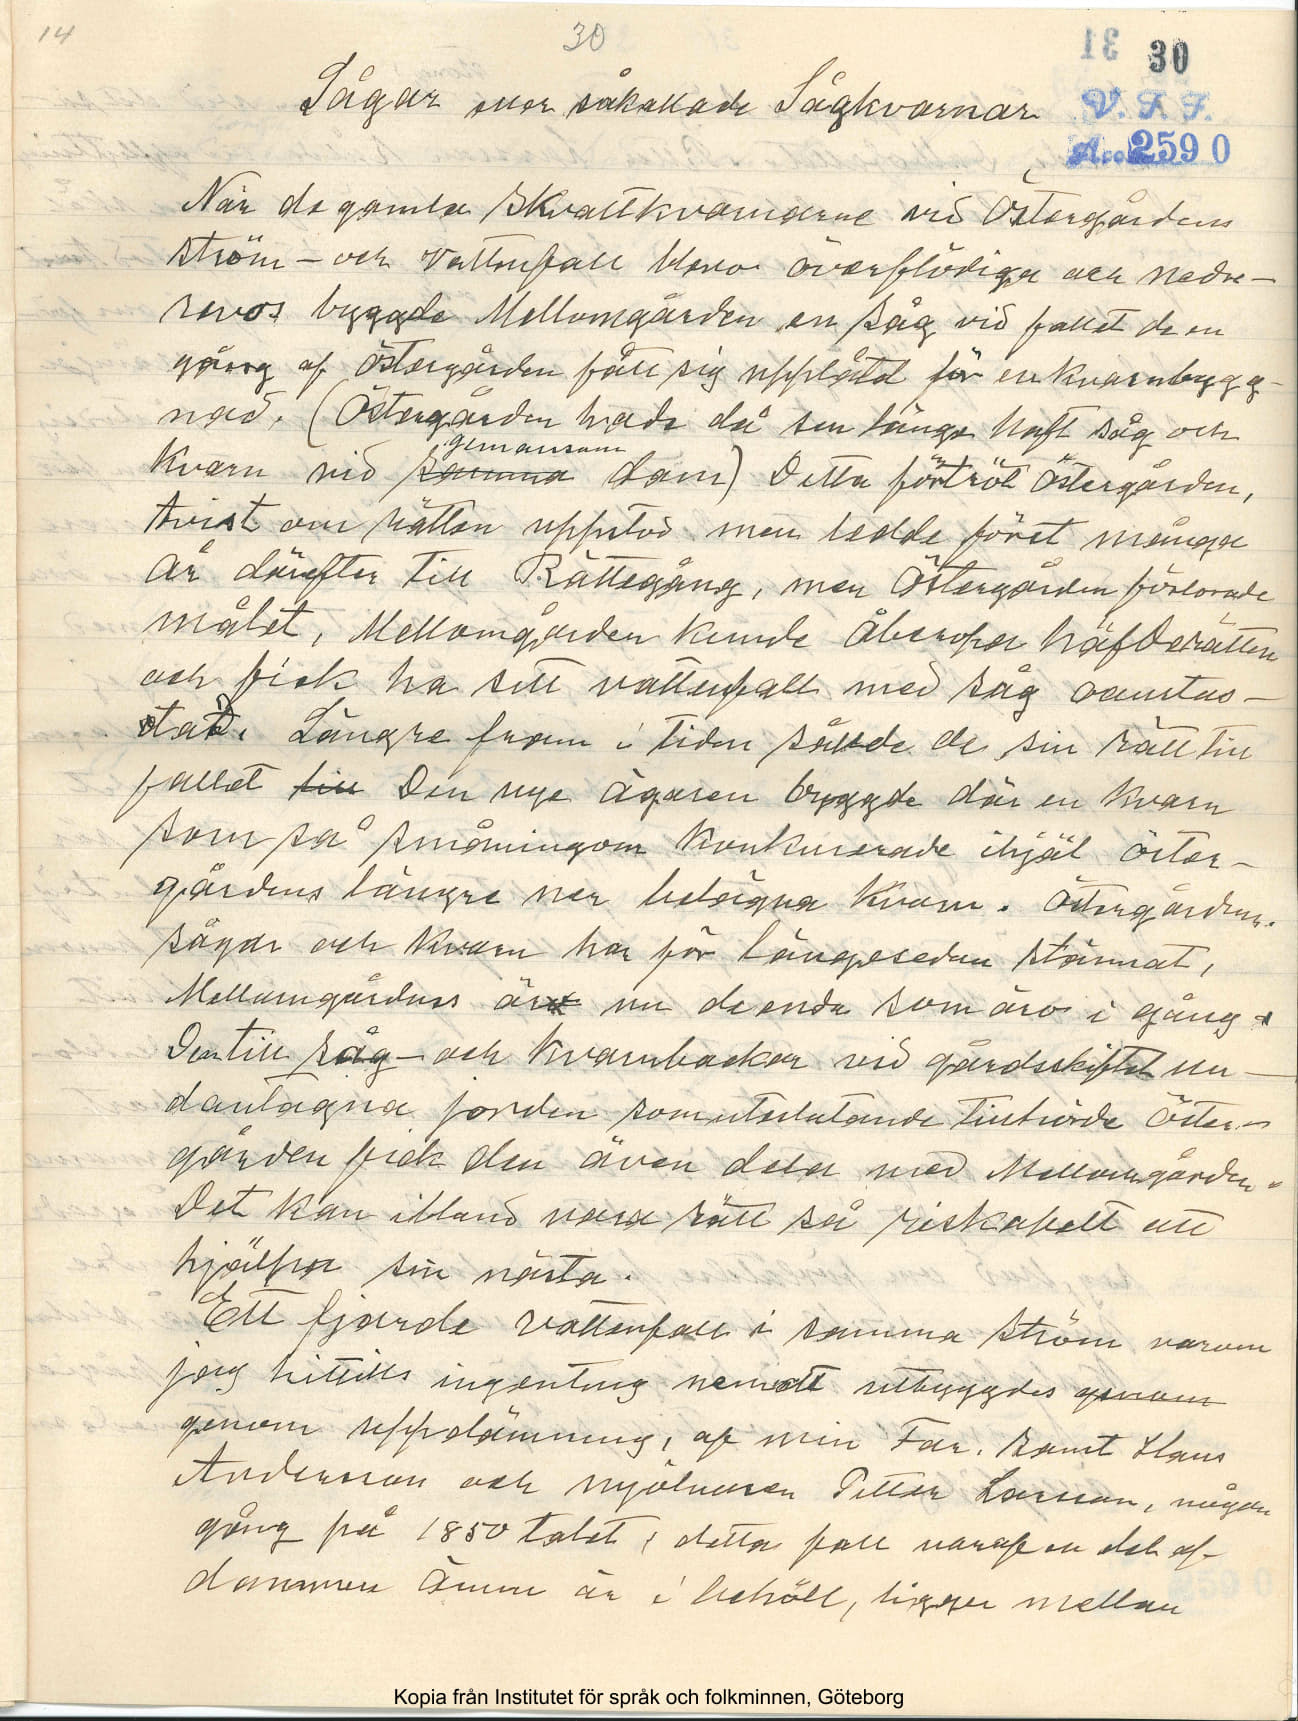 14
30
31 30
Sågar eller såkallade Sågkvarnar
V. F. F.
Acc. 2590
När de gamla skvattkvarnarne vid Östergårdens
ström – och vattenfall blevo överflödiga och nedre-
revos byggde Mellomgården en såg vid fallet de en
gång af Östergården fått sig upplåtet för en kvarnbygg-
nad. (Östergården hade då sen länge haft såg och
gemansam
kvarn vid samma dam) Detta förtröt Östergården,
tvist om rätten uppstod men ledde först många
år därefter till Rättegång, men Östergården förlorade
målet, Mellomgården kunde åberopa häfdsrätten
och fick ha sitt vattenfall med såg oantas-
tad. Längre fram i tiden sålde de sin rätt till
fallet till Den nye ägaren byggde där en kvarn
som så småningom konkurerade ihjäl öster-
gårdens längre ner belägna kvarn. Östergårdens
sågar och kvarn har för längesedan stannat,
Mellomgårdens är nu de enda som äro i gång.
Den till såg – och kvarnbackar vid gårdsskiftet un-
dantagna jorden som uteslutande tillhörde Öster-
gården fick den även dela med Mellomgården.
Det kan ibland vara rätt så riskabelt att
hjälpa sin nästa.
Ett fjärde vattenfall i samma ström varom
jag hittills ingenting nemt utbyggdes genom
genom uppdämning, af min Far, samt Hans
Andersson och mjölnaren Petter Larsson, någon
gång på 1850 talet, detta fall varaf en del af
dammen ännu är i behåll, ligger mellan
2590
Kopia från Institutet för språk och folkminnen, Göteborg